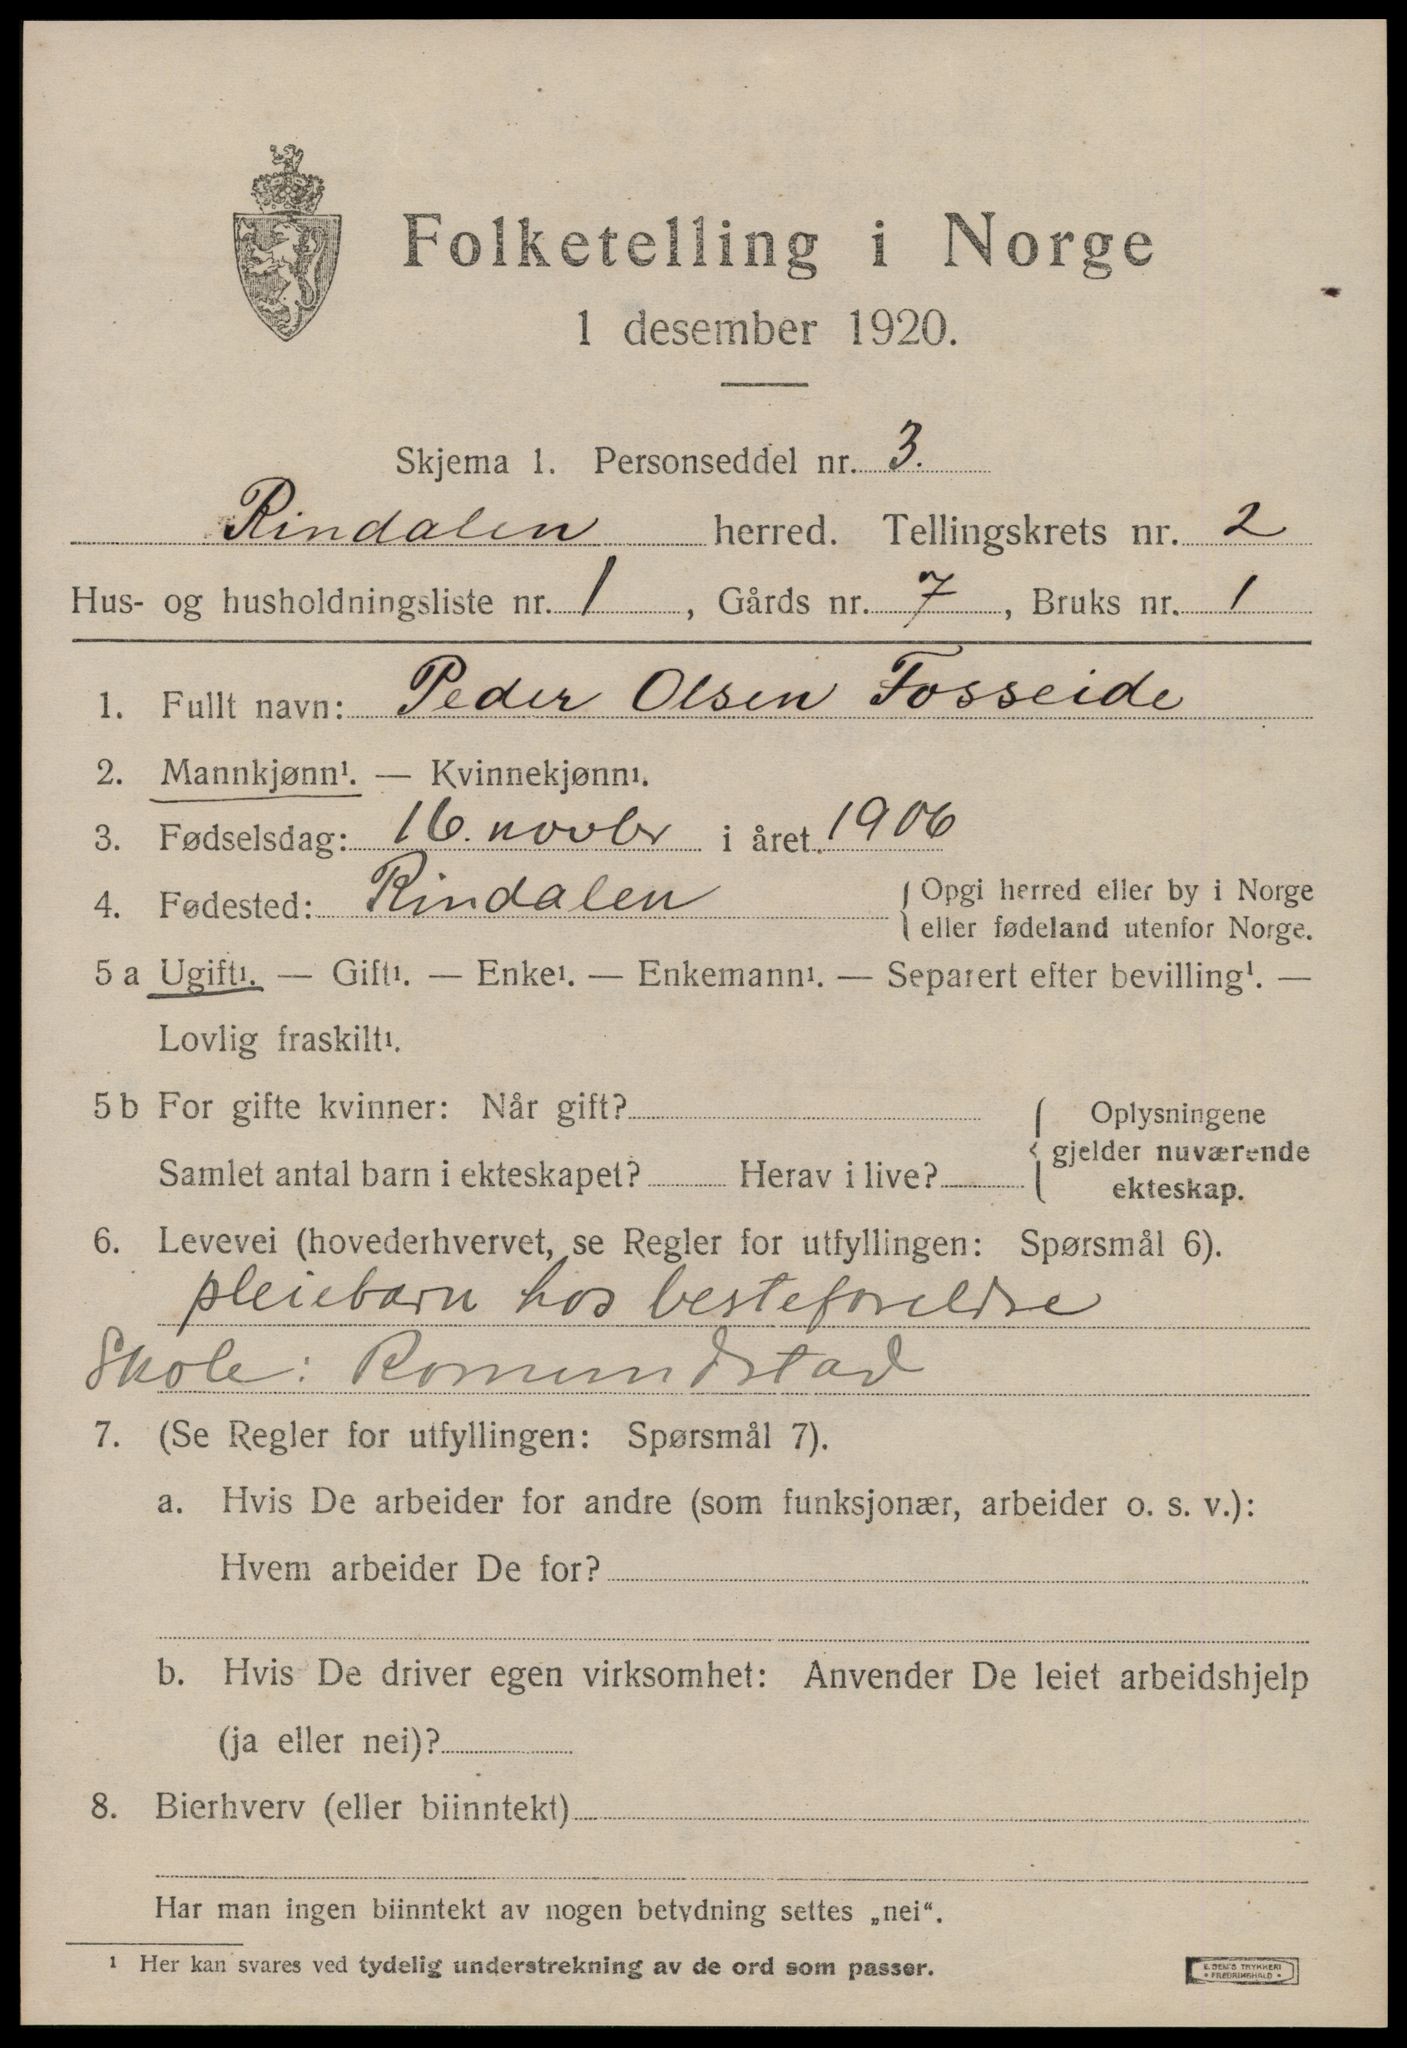 Folketelling i Norge
1 desember 1920.
Skjema 1. Personseddel nr. 3.
Rindalen herred. Tellingskrets nr. 2
Hus- og husholdningsliste nr. 1, Gårds nr. 7, Bruks nr. 1
1. Fullt navn: Peder Olsen Fosseide
2. Mannkjønn¹. — Kvinnekjønn¹.
3. Fødselsdag: 16. novbr i året 1906
4. Fødested: Rindalen { Opgi herred eller by i Norge
eller fødeland utenfor Norge.
5 a Ugift¹. — Gift¹. — Enke¹. — Enkemann¹. — Separert efter bevilling¹. —
Lovlig fraskilt¹.
5 b For gifte kvinner: Når gift? { Oplysningene
gjelder nuværende
Samlet antal barn i ekteskapet? Herav i live? ekteskap.
6. Levevei (hovederhvervet, se Regler for utfyllingen: Spørsmål 6).
pleiebarn hos besteforeldre
Skole: Romundstad
7. (Se Regler for utfyllingen: Spørsmål 7).
a. Hvis De arbeider for andre (som funksjonær, arbeider o. s. v.):
Hvem arbeider De for?
b. Hvis De driver egen virksomhet: Anvender De leiet arbeidshjelp
(ja eller nei)?
8. Bierhverv (eller biinntekt)
Har man ingen biinntekt av nogen betydning settes „nei“.
¹ Her kan svares ved tydelig understrekning av de ord som passer.
E. SEM'S TRYKKERI
• FREDRIKSHALD •